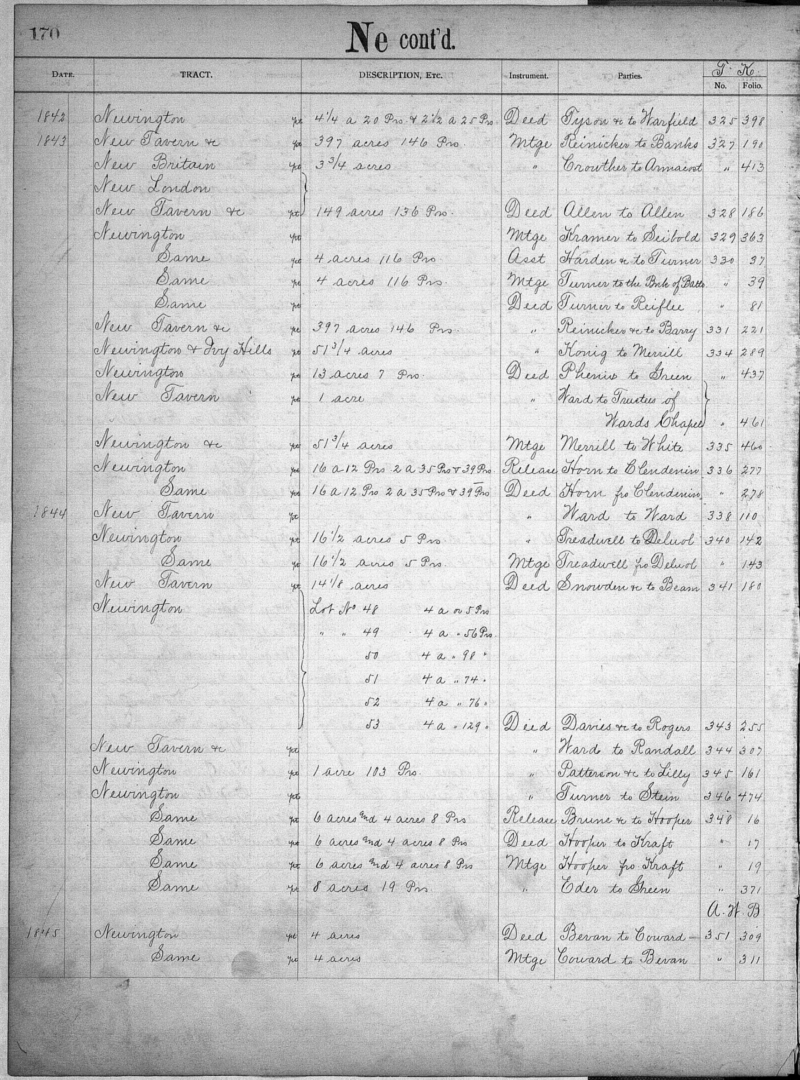 170
Ne cont'd.
DATE. TRACT. DESCRIPTION, ETC. Instrument. Parties. T. K.
No. Folio.
1842 Newington pt 4 1/4 a 20 Prs & 2 1/2 a 25 Prs. Deed Tyson &c to Warfield 325 398
1843 New Tavern &c pt 397 acres 146 Prs. Mtge Reinicker to Banks 327 190
New Britain pt 3 3/4 acres " Crowther to Armacost " 413
New London
New Tavern &c pt 149 acres 136 Prs. Deed Allen to Allen 328 186
Newington pt Mtge Kramer to Seibold 329 363
Same pt 4 acres 116 Prs. Asst Harden &c to Turner 330 37
Same pt 4 acres 116 Prs. Mtge Turner to the Bnk of Balto " 39
Same pt Deed Turner to Reiflee " 81
New Tavern &c pt 397 acres 146 Prs. " Reinicker &c to Barry 331 221
Newington & Ivy Hills pt 51 3/4 acres " Konig to Merrill 334 289
Newington pt 13 acres 7 Prs. Deed Phenix to Green " 437
New Tavern pt 1 acre " Ward to Trustees of
Wards Chapel " 461
Newington &c pt 51 3/4 acres Mtge Merrill to White 335 460
Newington pt 16 a 12 Prs 2 a 35 Prs & 39 Prs. Release Horn to Clendenin 336 277
Same pt 16 a 12 Prs 2 a 35 Prs & 39 Prs Deed Horn fro Clendenin " 278
1844 New Tavern pt " Ward to Ward 338 110
Newington pt 16 1/2 acres 5 Prs. " Treadwell to Deluol 340 142
Same pt 16 1/2 acres 5 Prs. Mtge Treadwell fro Deluol " 143
New Tavern pt 14 1/8 acres Deed Snowden &c to Beam 341 180
Newington Lot No 48 4 a or 5 Prs
" " 49 4 a " 56 Prs.
50 4 a " 98 "
51 4 a " 74 "
52 4 a " 76 "
53 4 a " 129 " Deed Davies &c to Rogers 343 255
New Tavern &c pt " Ward to Randall 344 307
Newington pt 1 acre 103 Prs. " Patterson &c to Lilly 345 161
Newington pt " Turner to Stein 346 474
Same pt 6 acres and 4 acres 8 Prs Release Brune &c to Hooper 348 16
Same pt 6 acres and 4 acres 8 Prs Deed Hooper to Kraft " 17
Same pt 6 acres and 4 acres 8 Prs Mtge Hooper fro Kraft " 19
Same pt 8 acres 19 Prs " Eder to Green " 371
A. W. B
1845 Newington pt 4 acres Deed Bevan to Coward 351 309
Same pt 4 acres Mtge Coward to Bevan " 311